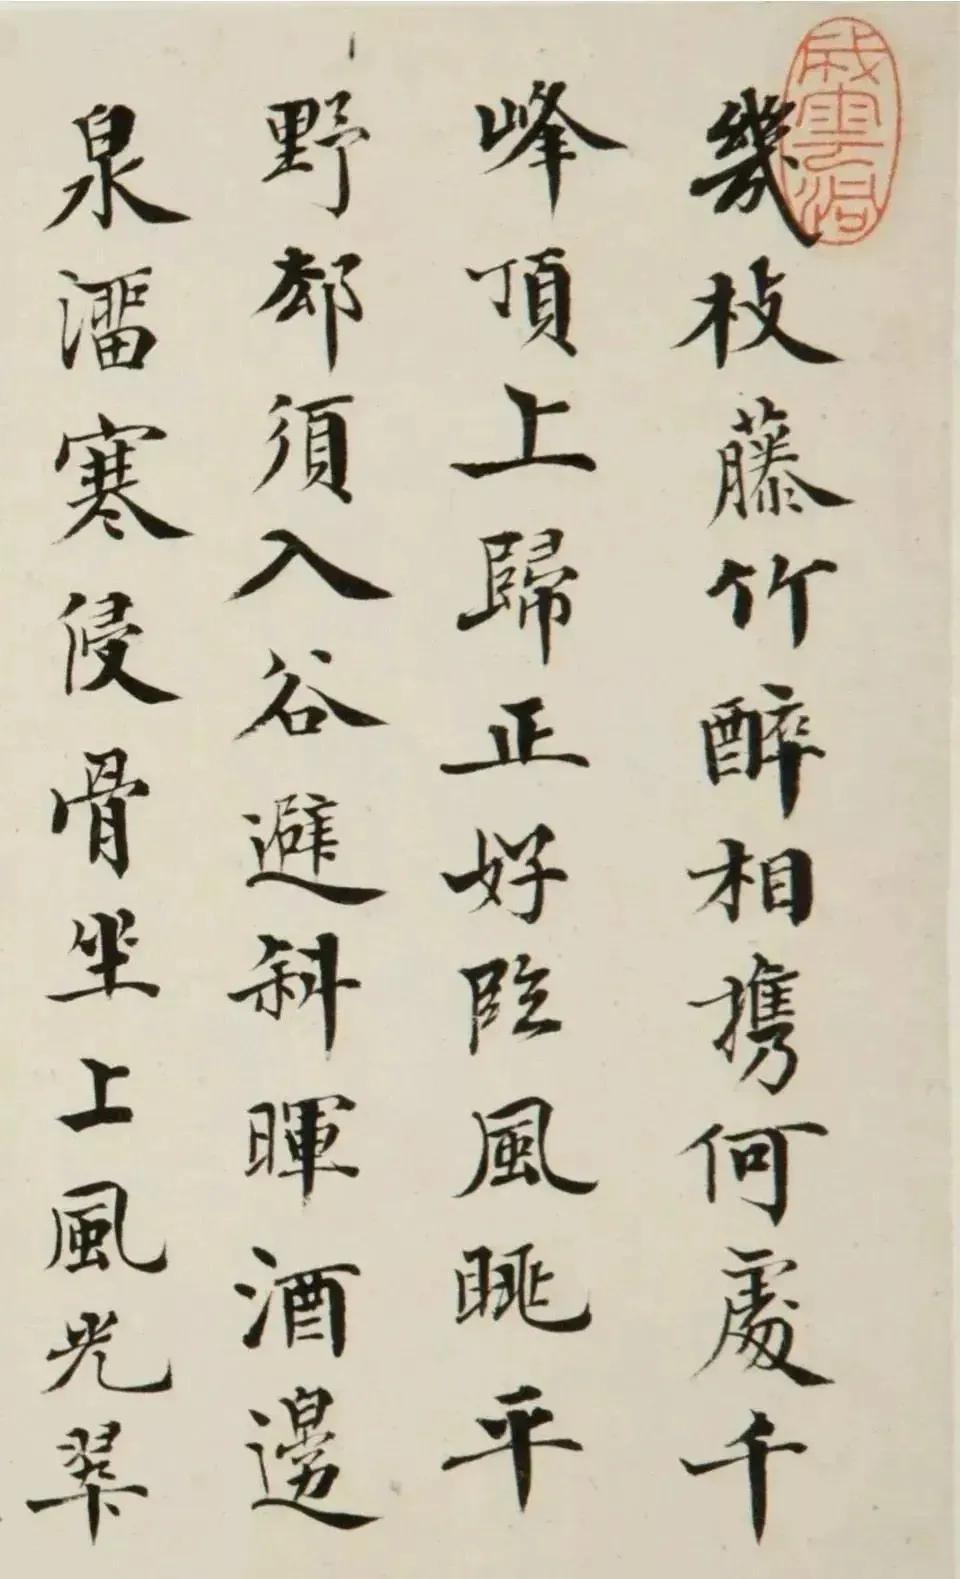 幾枝藤竹醉相携何處千
峰頂上歸正好臨風眺平
野却須入谷避斜暉酒邊
泉溜寒侵骨坐上風光翠